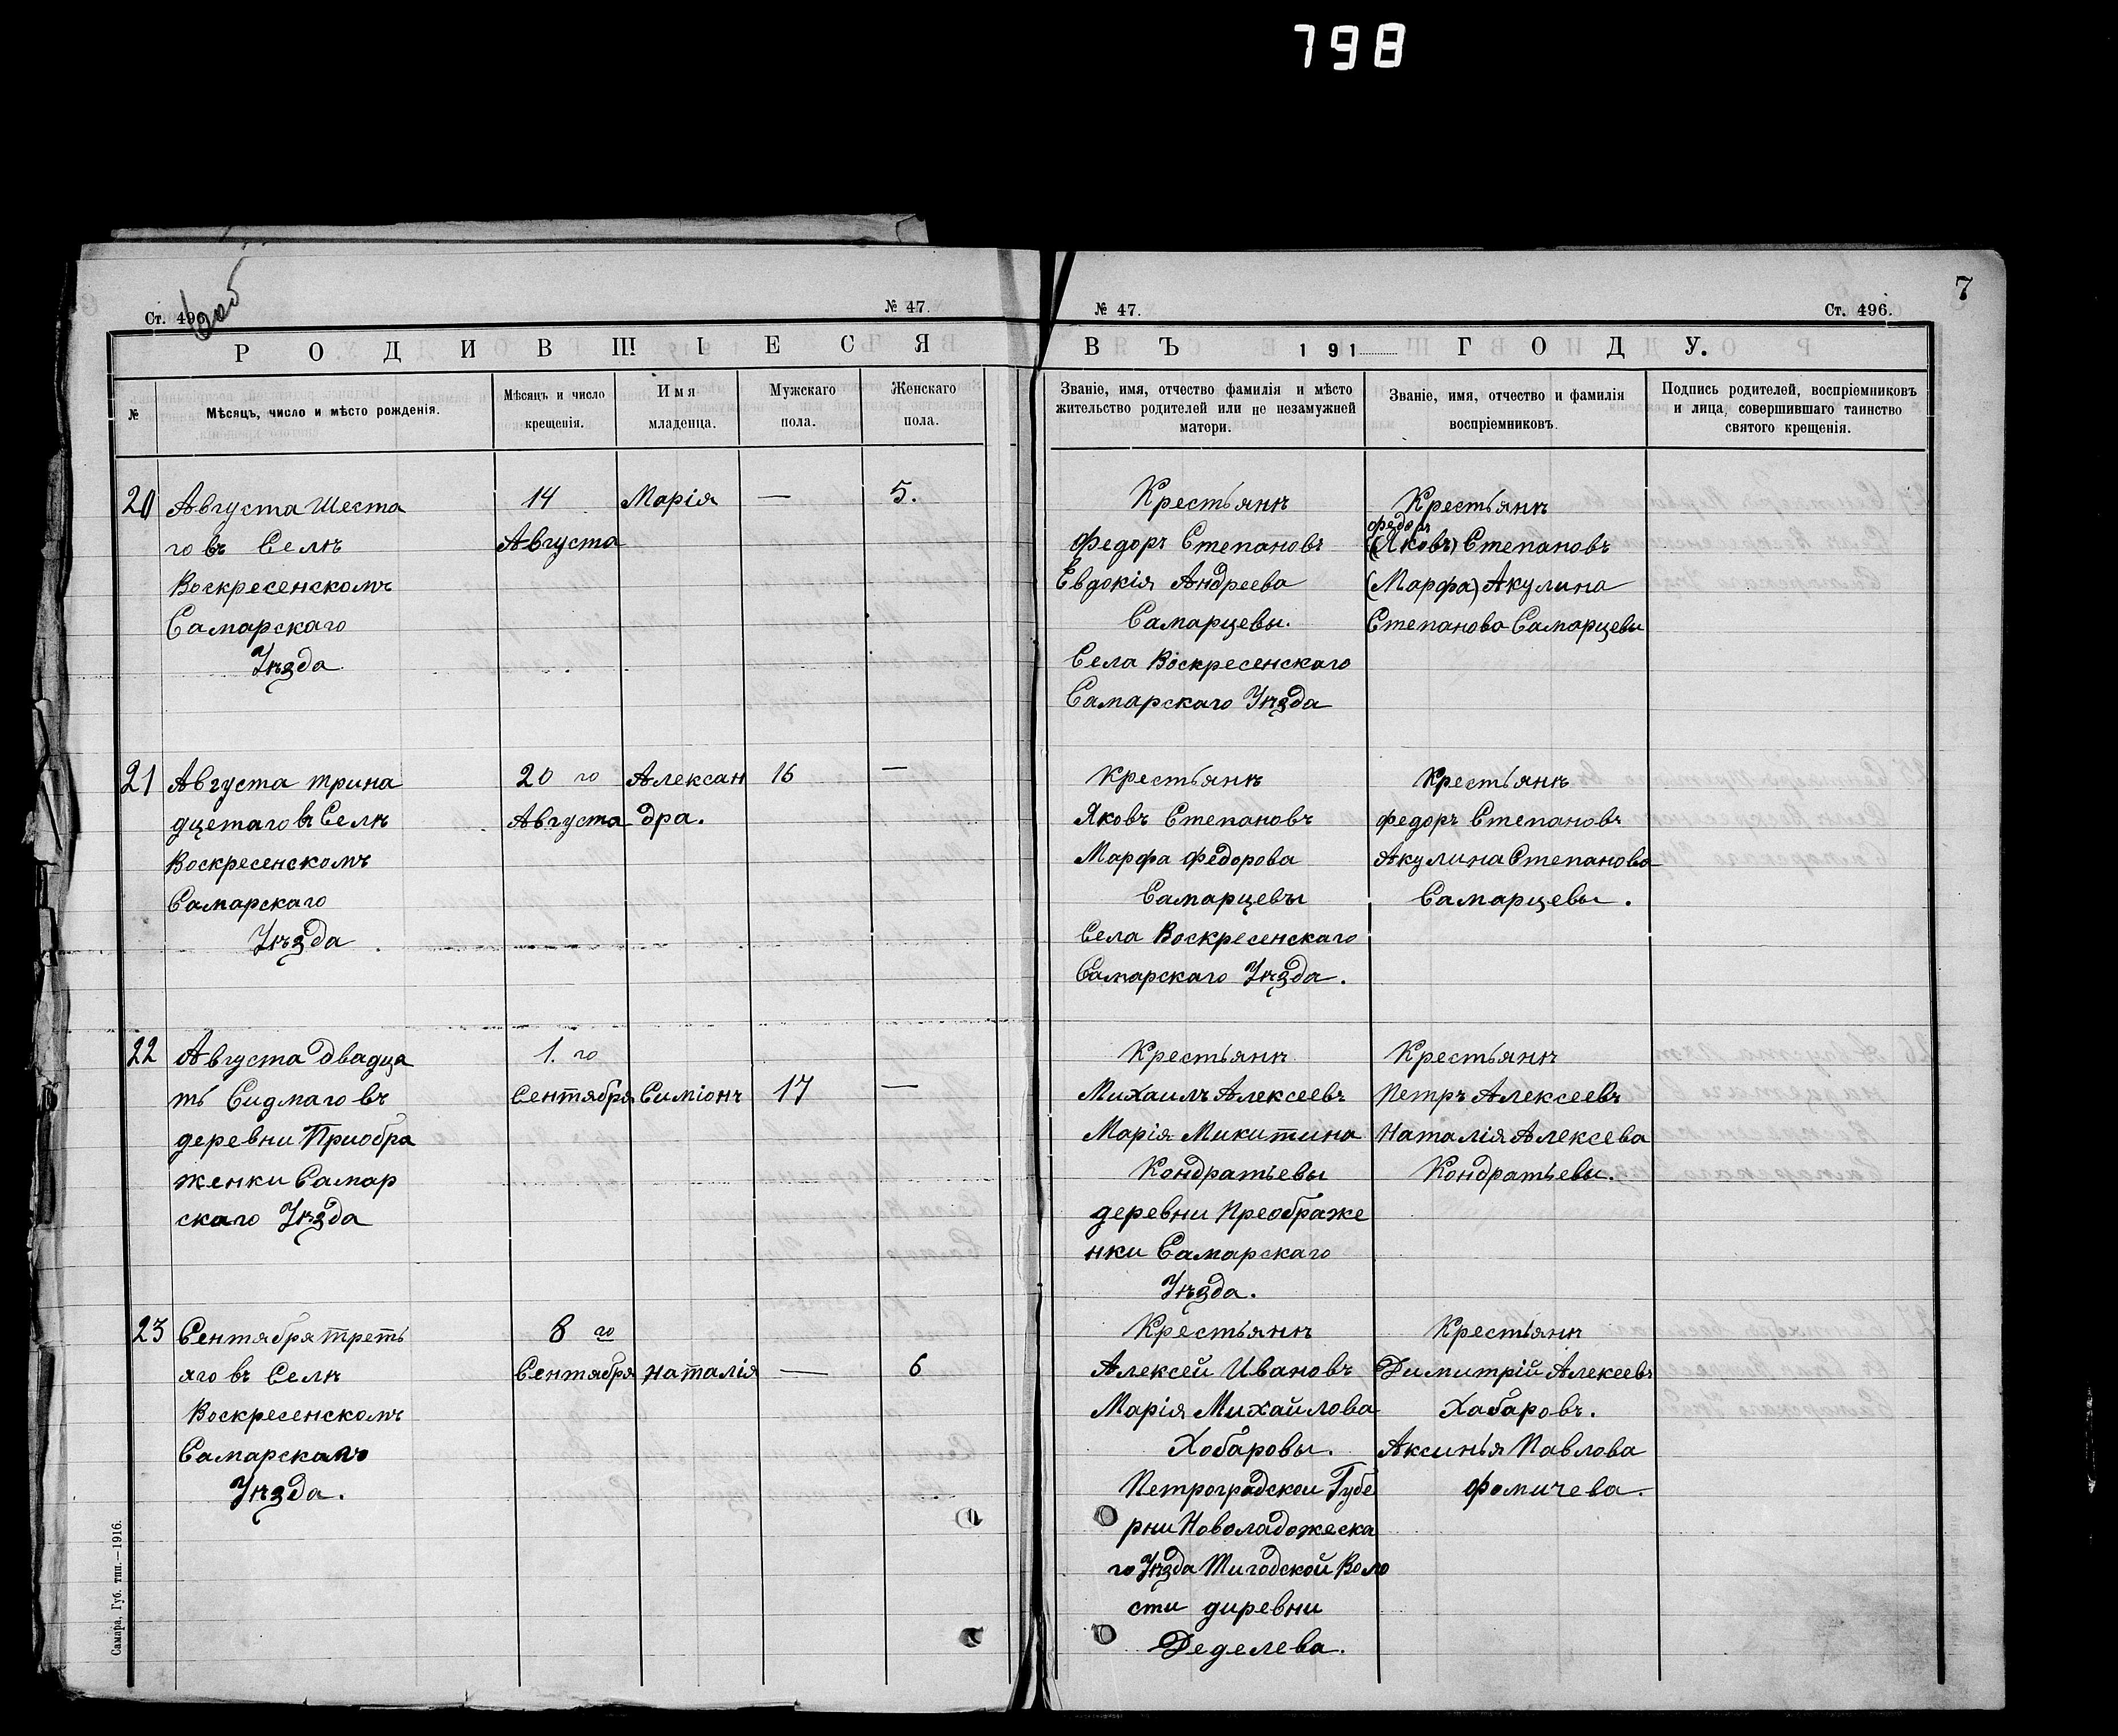 798
7
Ст. 496.
№ 47.
№ 47.
Ст. 496.
РОДИВШІЕСЯ
ВЪ 191 ГОДУ.
№
Мѣсяцъ, число и мѣсто рожденія.
Мѣсяцъ и число
крещенія.
Имя
младенца.
Мужскаго
пола.
Женскаго
пола.
Званіе, имя, отчество фамилія и мѣсто
жительство родителей или не незамужней
матери.
Званіе, имя, отчество и фамилія
воспріемниковъ.
Подпись родителей, воспріемниковъ
и лица, совершившаго таинство
святого крещенія.
20
Августа Шеста
го въ Селѣ
Воскресенскомъ
Самарскаго
Уѣзда
14
Августа
Марія
—
5.
Крестьянѣ
Федоръ Степановъ
Евдокія Андреева
Самарцевы.
Села Воскресенскаго
Самарскаго Уѣзда
Крестьянѣ
Федоръ
(Яковъ) Степановъ
(Марфа) Акулина
Степанова Самарцевы
21
Августа трина
дцетаго въ Селѣ
Воскресенскомъ
Самарскаго
Уѣзда
20 го
Августа
Алексан
дра.
16
—
Крестьянѣ
Яковъ Степановъ
Марфа Федорова
Самарцевы
Села Воскресенскаго
Самарскаго Уѣзда.
Крестьянѣ
Федоръ Степановъ
Акулина Степанова
Самарцевы.
22
Августа двадца
ть Сидмаго въ
деревни Приобра
женки Самар
скаго Уѣзда
1. го
Сентября
Симіонъ
17
—
Крестьянѣ
Михаилъ Алексеевъ
Марія Микитина
Кондратьевы
деревни Преображе
нки Самарскаго
Уѣзда.
Крестьянѣ
Петръ Алексеевъ
Наталія Алексева
Кондратьевы.
23
Сентября треть
яго въ Селѣ
Воскресенскомъ
Самарскаго
Уѣзда.
8 го
Сентября
Наталія
—
6
Крестьянѣ
Алексей Ивановъ
Марія Михайлова
Хобаровы.
Петроградскои Губе
рни Новоладожеска
го Уѣзда Тигодской Воло
сти диревни
Деделева.
Крестьянѣ
Димитрій Алексеевъ
Хабаровъ.
Аксинья Павлова
Фомичева.
Самара, Губ. тип.—1916.